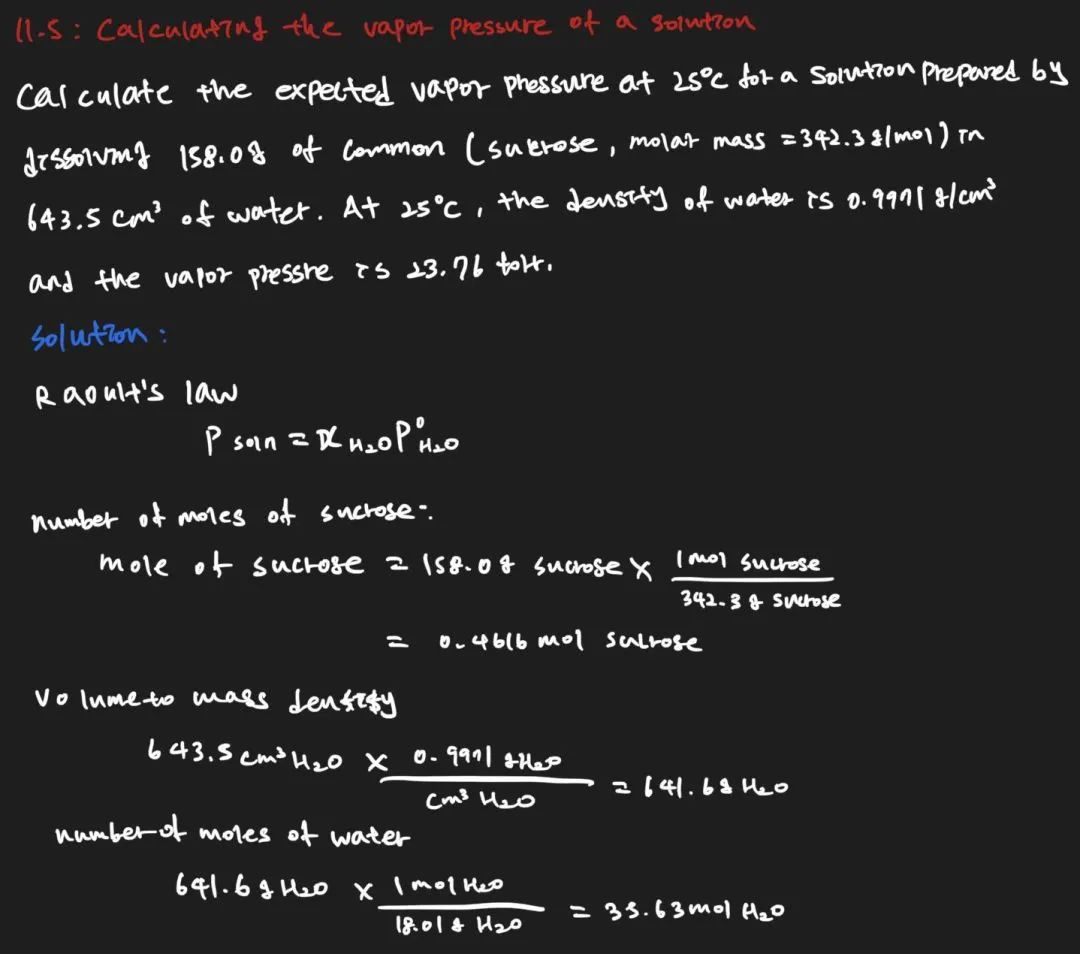 11.5 : Calculating the vapor pressure of a solution
Calculate the expected vapor pressure at 25°C for a solution prepared by
dissolving 158.0g of common (sucrose, molar mass = 342.3 g/mol) in
643.5 cm³ of water. At 25°C, the density of water is 0.9971 g/cm³
and the vapor pressre is 23.76 torr.
Solution :
Raoult's law
P soln = X H₂O P° H₂O
number of moles of sucrose:
mole of sucrose = 158.0 g sucrose × 1 mol sucrose / 342.3 g sucrose
= 0.4616 mol sucrose
Volume to mass density
643.5 cm³ H₂O × 0.9971 g H₂O / cm³ H₂O = 641.6 g H₂O
number of moles of water
641.6 g H₂O × 1 mol H₂O / 18.01 g H₂O = 35.63 mol H₂O